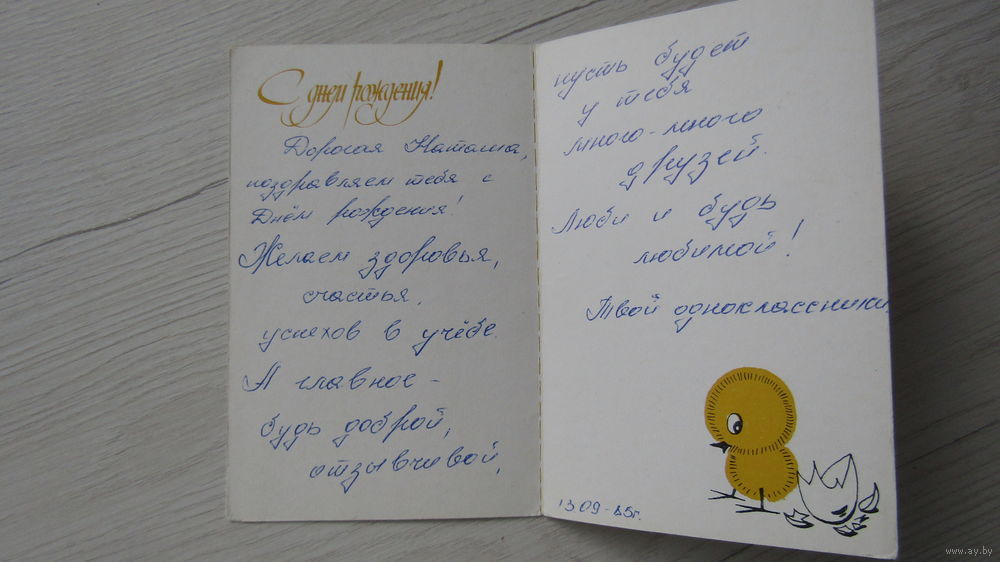 С днем рождения!
Дорогая Наташа,
поздравляем тебя с
Днём рождения!
Желаем здоровья,
счастья,
успехов в учёбе.
А главное -
будь доброй,
отзывчивой,
пусть будет
у тебя
много-много
друзей.
Люби и будь
любимой!
Твои одноклассники.
13 09-85г.
www.ay.by